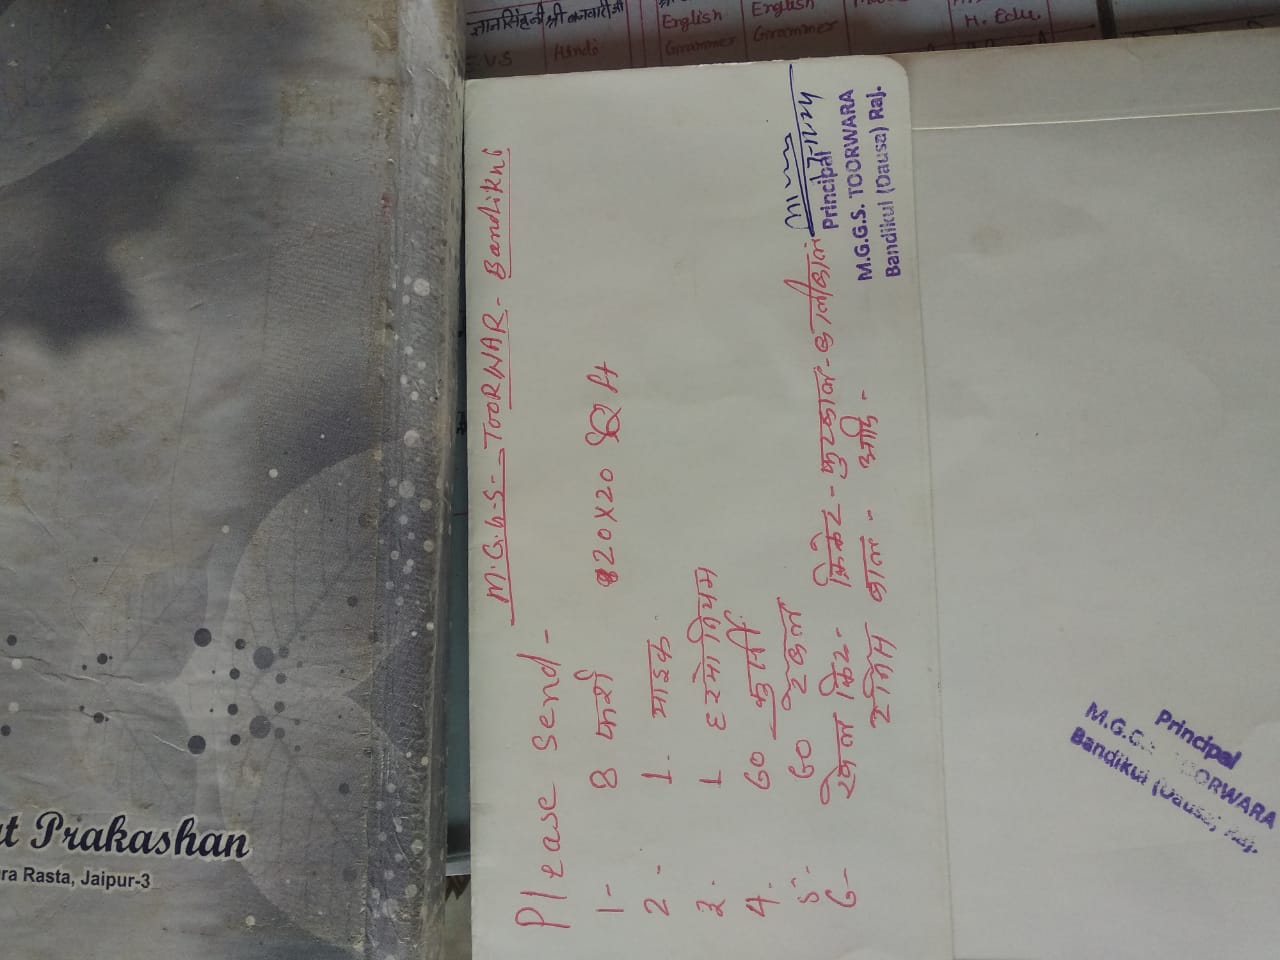 M.G.G.S - TOORWAR - Bandikui
Please send -
1- 8 फर्श 20x20 फिट
2- 1. माइक
3. 1 हरमोनियम
4. 60 कुर्सी
5- 60 टेबल
6- खेल किट - क्रिकेट - फुटबाल - वालीबाल
टेनिस बाल - आदि -
17-11-24
Principal
M.G.G.S. TOORWARA
Bandikui (Dausa) Raj.
Principal
M.G.G.S. TOORWARA
Bandikui (Dausa) Raj.
Prakashan
Rasta, Jaipur-3
English
Grammer
English
Grammer
H. Edu.
EVS
Hindi